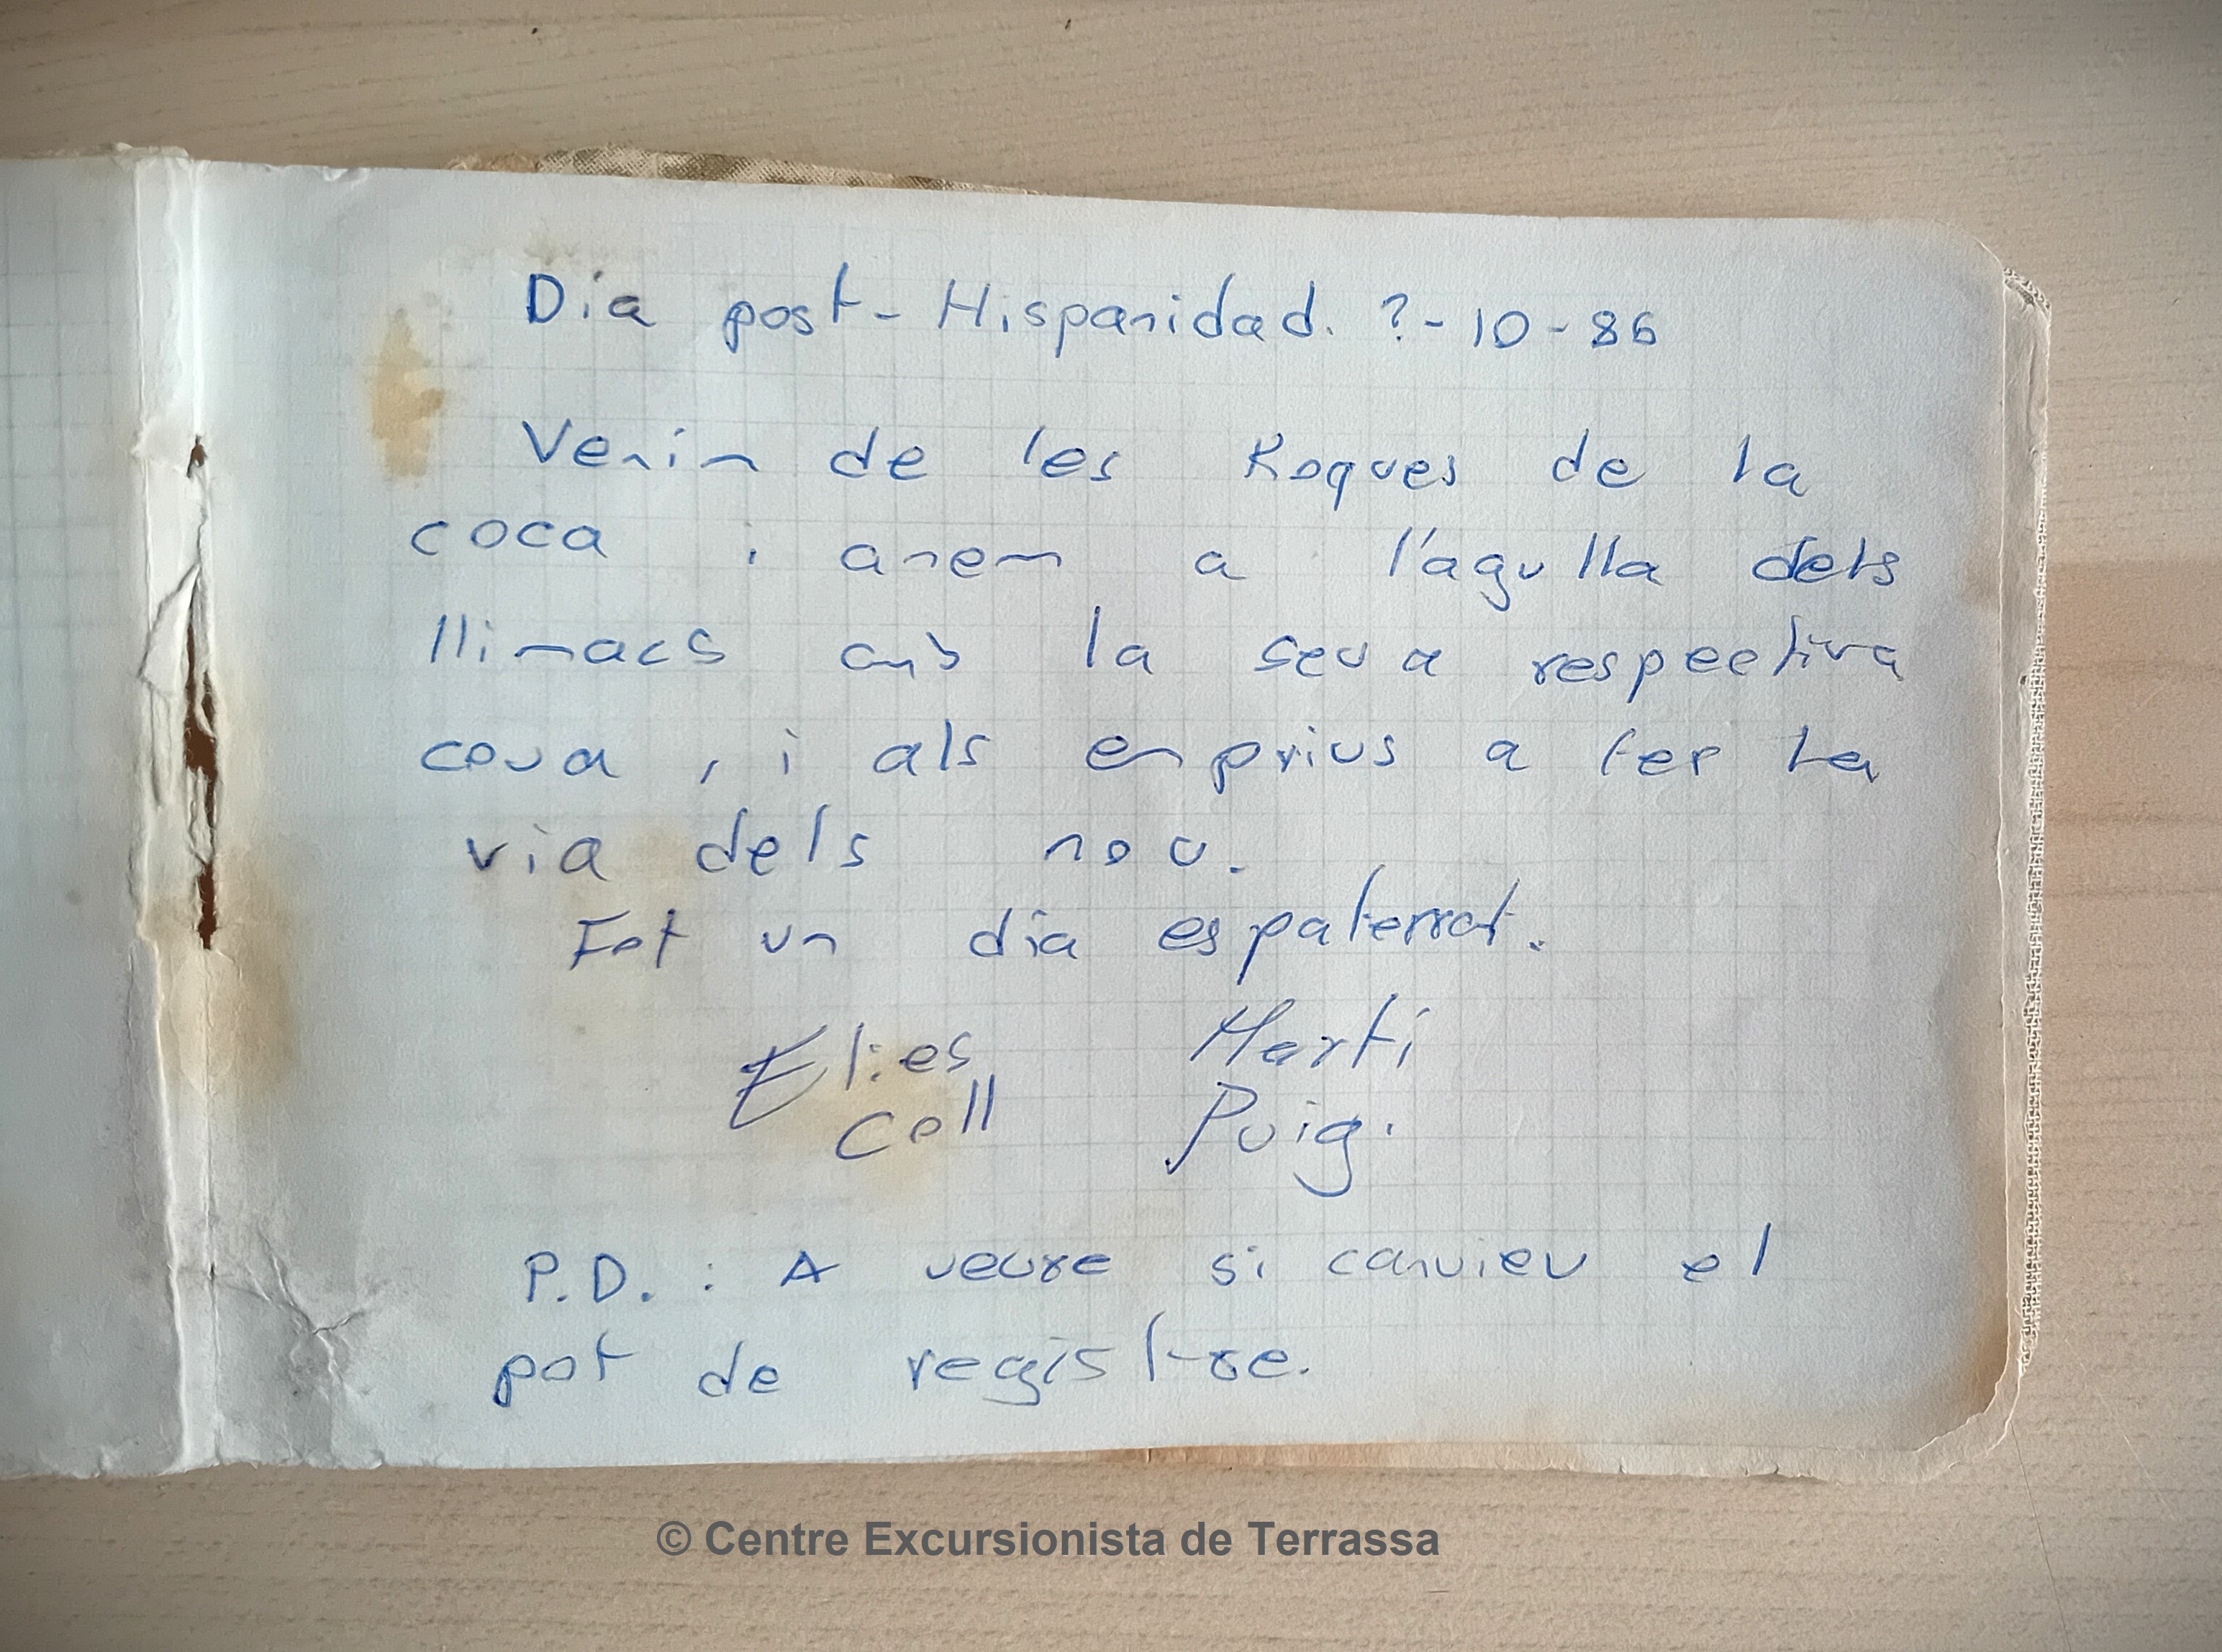 Dia post-Hispanidad. ?-10-86
Venim de les Roques de la
coca i anem a l'agulla dels
llimacs amb la seva respectiva
cova, i als emprius a fer la
via dels nou.
Fot un dia espaterrat.
Elies Martí
Coll Puig.
P.D.: A veure si canvieu el
pot de registre.
© Centre Excursionista de Terrassa